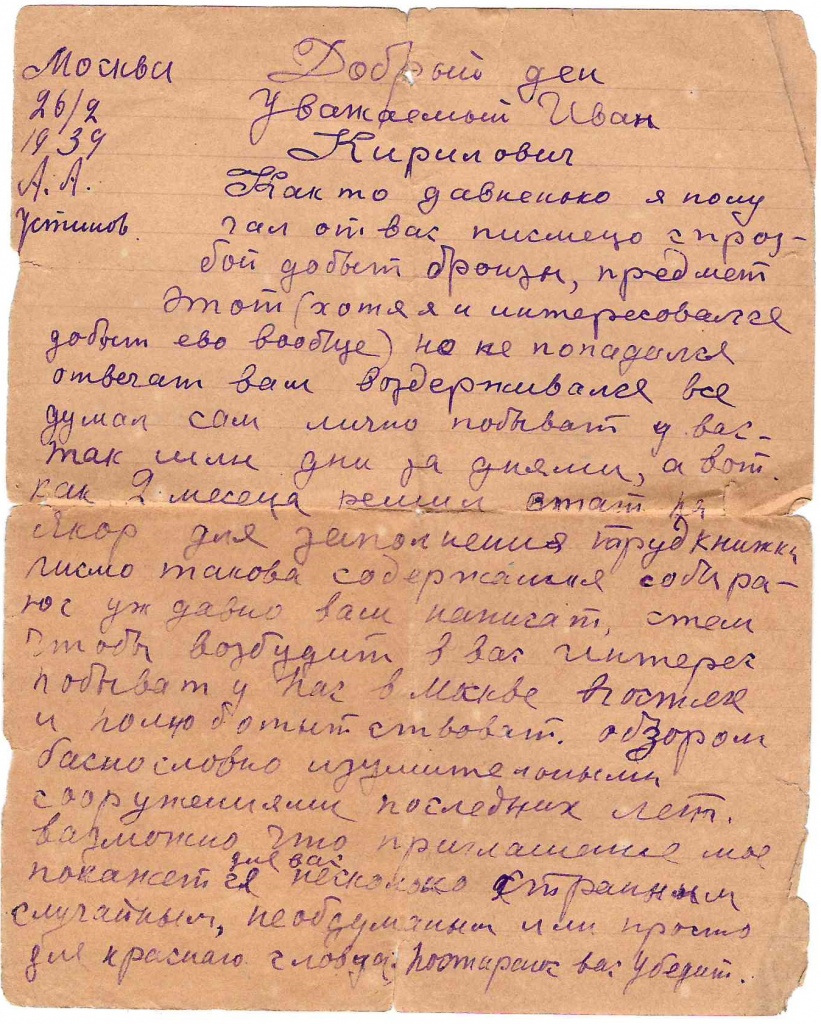 Москва
26/2
1939
А. А.
Устинов
Добрый ден
Уважаемый Иван
Кирилович
Как то давненько я полу
чал от вас писмецо с проз-
бой добыт бронзы, предмет
этот (хотя я и интересовался
добыт ево вообще) но не попадался
отвечат вам воздерживался все
думал сам лично побыват у вас-
так шли дни за днями, а вот.
как 2 месеца решил стат на
Якор для заполнения трудкнижки
писмо такова содержания собира-
юс уж давно вам написат, стем
чтобы возбудит в вас интерес
побыват у нас в Мокве
и полюбопытствоват. обзором
баснословно изумителоными
сооружениями последних лет.
возможно что приглашение мое
покажется для вас несколоко странным
случайным, необдуманым или просто
для краснаго словца. Постараюс вас убедит.